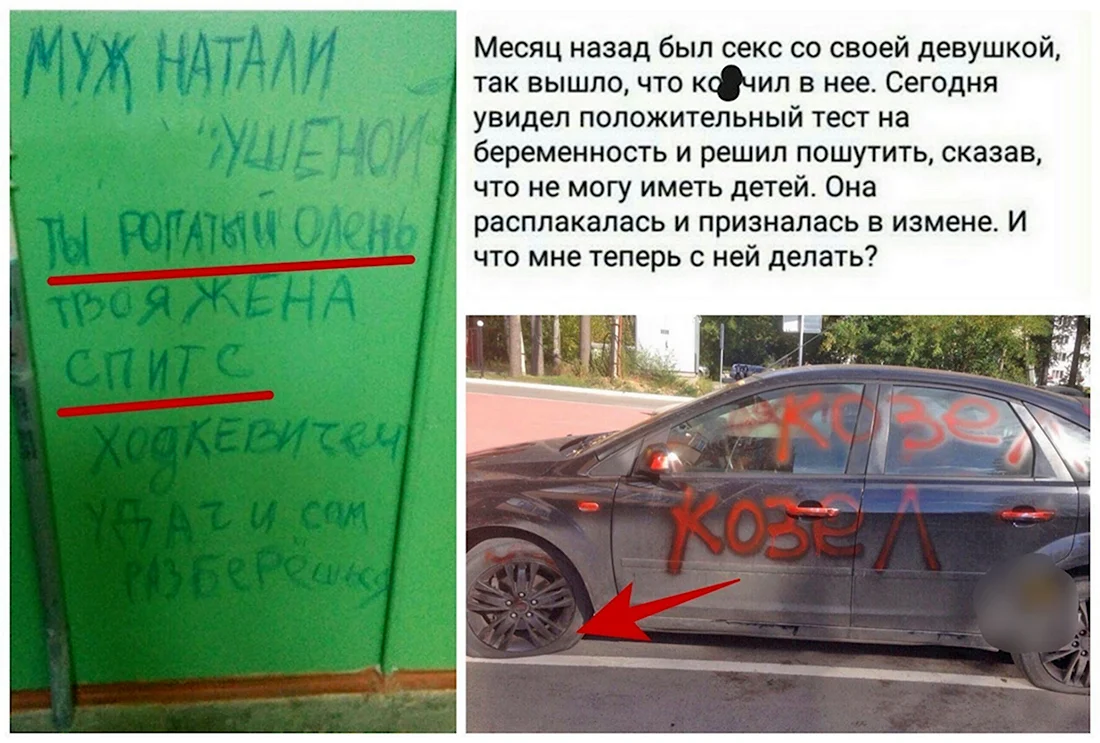 МУЖ НАТАЛИ
УШЕНОЙ
ТЫ РОГАТЫЙ ОЛЕНЬ
ТВОЯ ЖЕНА
СПИТ С
ХОДКЕВИЧем
УДАЧи сам
РАЗБЕРЁШЬСЯ
Месяц назад был секс со своей девушкой,
так вышло, что ко чил в нее. Сегодня
увидел положительный тест на
беременность и решил пошутить, сказав,
что не могу иметь детей. Она
расплакалась и призналась в измене. И
что мне теперь с ней делать?
КОЗЕЛ
КОЗЕЛ